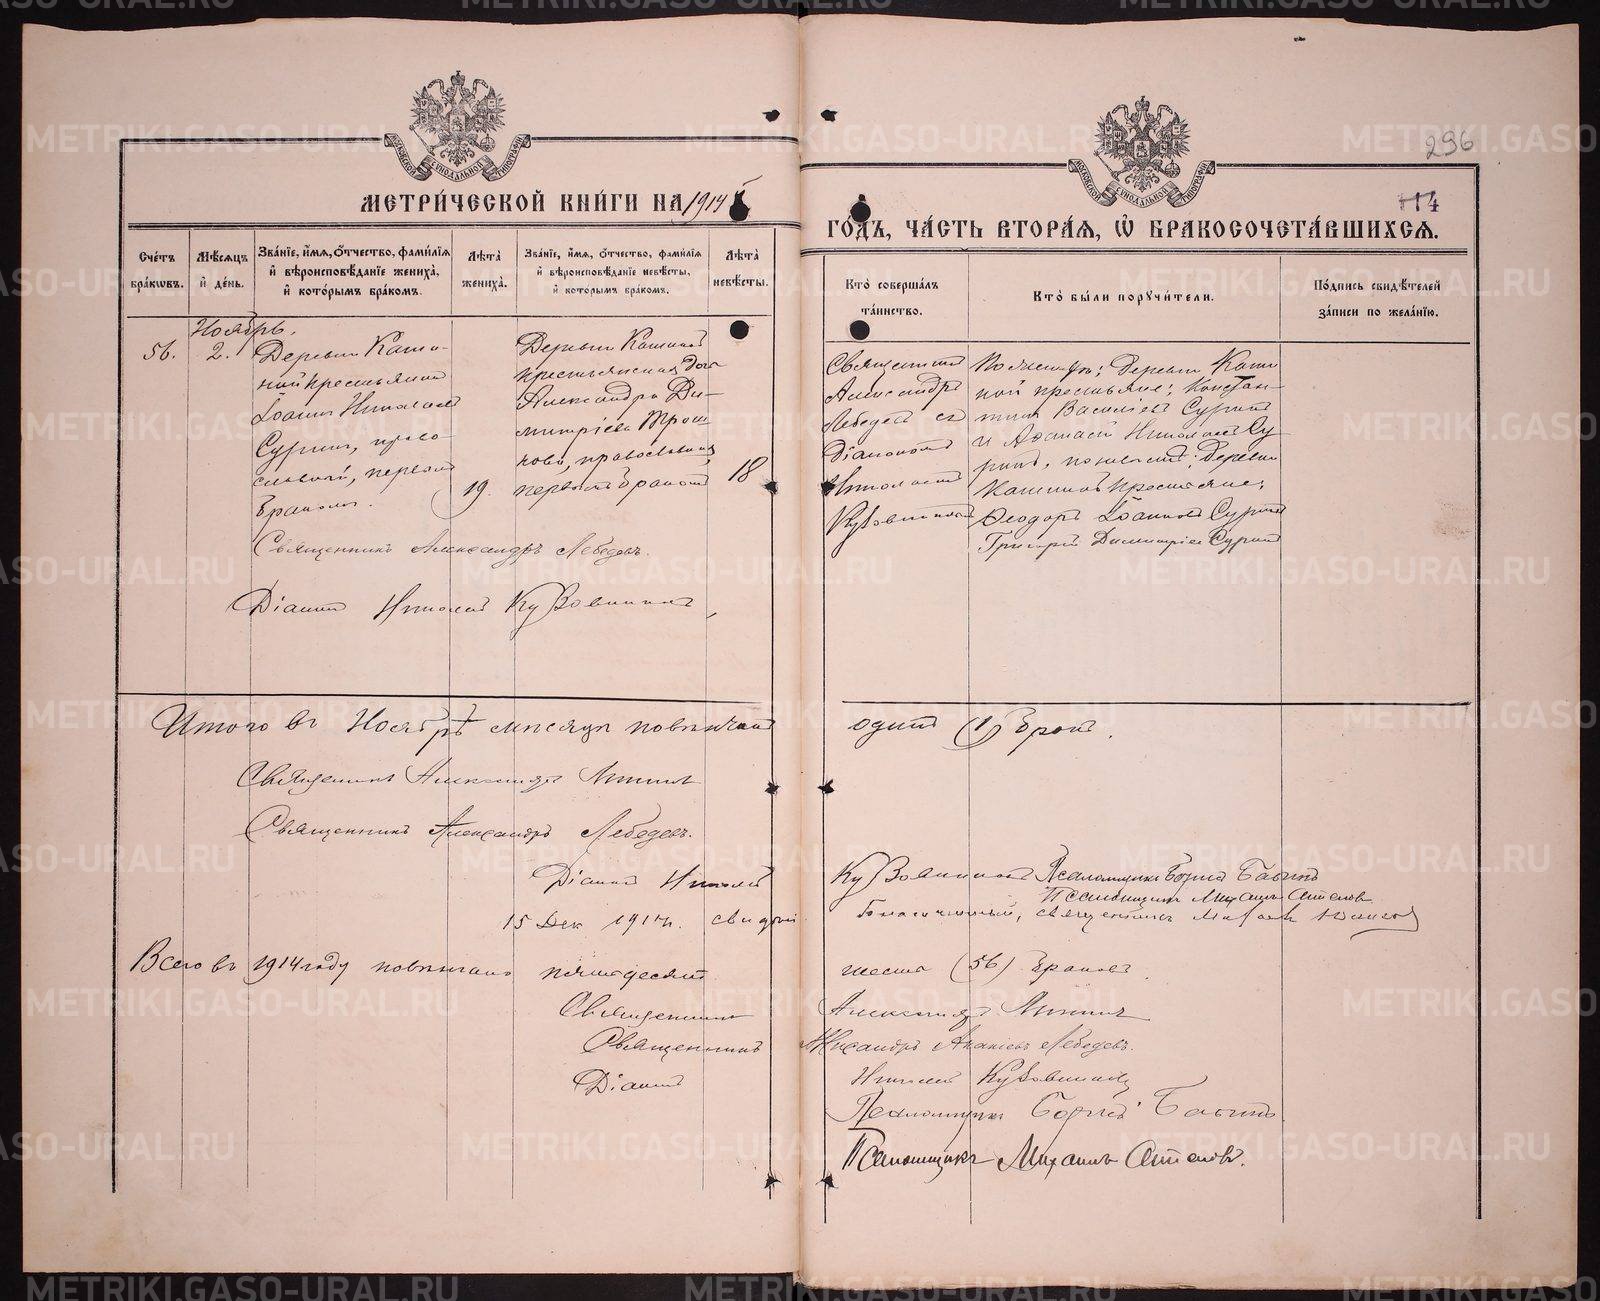 296
114
МЕТРИЧЕСКОЙ КНИГИ НА 1914
ГОДЪ, ЧАСТЬ ВТОРАЯ, Ѡ БРАКОСОЧЕТАВШИХСЯ.
Счетъ браковъ.
Мѣсяцъ и день.
Званіе, имя, отчество, фамилія и вѣроисповѣданіе жениха, и которымъ бракомъ.
Лѣта жениха.
Званіе, имя, отчество, фамилія и вѣроисповѣданіе невѣсты, и которымъ бракомъ.
Лѣта невѣсты.
Кто совершалъ таинство.
Кто были поручители.
Подпись свидѣтелей записи по желанію.
Ноябрь.
56.
2.
Деревни Каши-
ной крестьянинъ
Іоаннъ Николаевъ
Суринъ, право-
славный, первымъ
бракомъ.
19.
Деревни Кашиной
крестьянская дочь
Александра Ди-
митріева
православная,
первымъ бракомъ
18
Священникъ
Александръ
Лебедевъ съ
Діакономъ
Николаемъ
Кузовниковымъ
По женихѣ: Деревни Каши
ной крестьяне: Констан-
тинъ Василіевъ Суринъ
и Аѳанасій Николаевъ Су
ринъ, по невѣстѣ: Деревни
Кашиной крестьяне:
Ѳеодоръ Іоанновъ Суринъ
Григорій Димитріевъ Суринъ
Священникъ Александръ Лебедевъ.
Діаконъ Николай Кузовниковъ
Итого въ Ноябрѣ мѣсяцѣ повѣнчанъ одинъ (1) бракъ.
Священникъ Александръ
Священникъ Александръ Лебедевъ.
Діаконъ Николай Кузовниковъ Псаломщикъ Борисъ
Псаломщикъ Михаилъ
15 Дек 1914 г.
Благочинный, священникъ
Всего въ 1914 году повѣнчано пятьдесятъ шесть (56) браковъ.
Священникъ Александръ
Священникъ Александръ Лебедевъ.
Діаконъ Николай Кузовниковъ
Псаломщикъ Борисъ
Псаломщикъ Михаилъ
METRIKI.GASO-URAL.RU